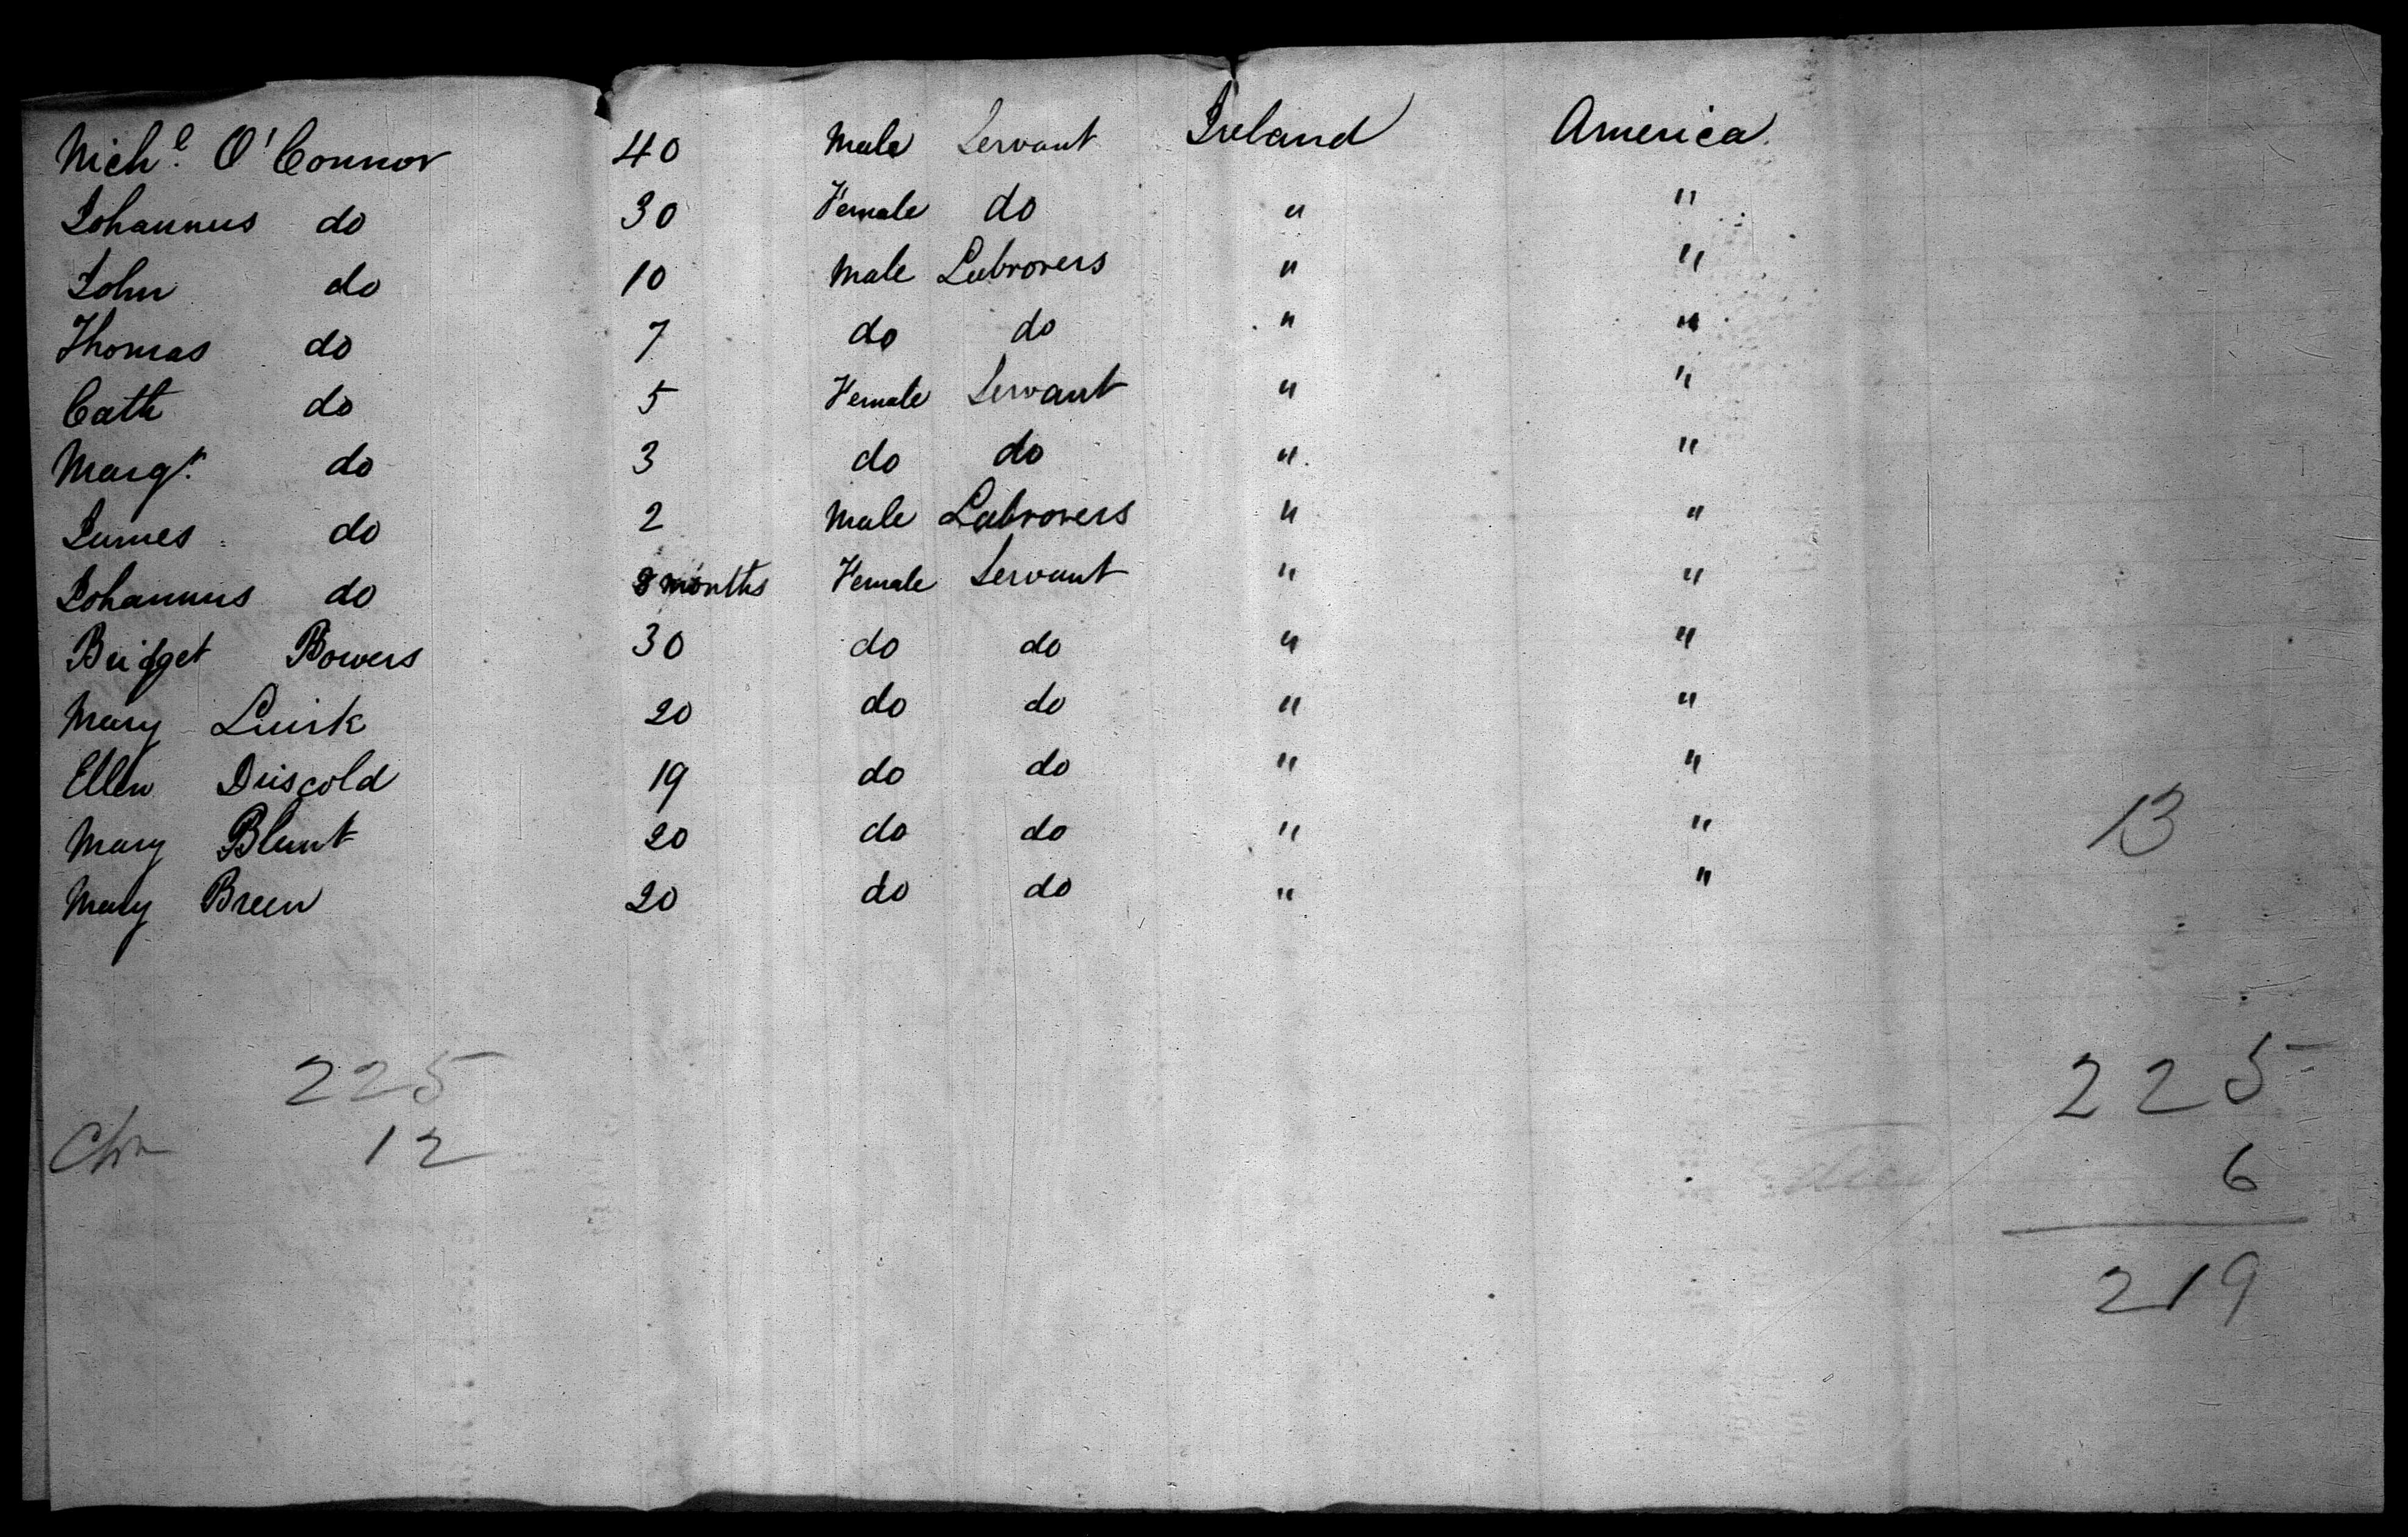 Nichl. O'Connor 40 Male Servant Ireland America
Johannus do 30 Female do " "
John do 10 Male Labrorers " "
Thomas do 7 do do " "
Cath do 5 Female Servant " "
Margt. do 3 do do " "
James do 2 Male Labrorers " "
Johannus do 8 months Female Servant " "
Bridget Bowers 30 do do " "
Mary Luirk 20 do do " "
Ellen Driscold 19 do do " "
Mary Blunt 20 do do " "
13
Mary Breen 20 do do " "
225 225
12 6
219